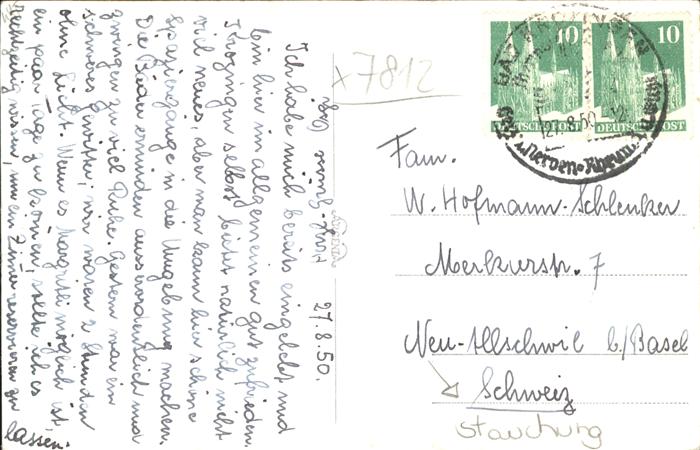 27.8.50.
Ich habe mich bereits eingelebt und
bin hier im allgemeinen gut zufrieden.
Krozingen selbst bietet natürlich nicht
viel neues, aber man kann hier schöne
Spaziergänge in die Umgebung machen.
Die Bäder ermüden ausserordentlich und
zwingen zu viel Ruhe. Gestern war ein
schweres Gewitter, wir waren 2 Stunden
ohne Licht. Wenn es Margritli möglich ist,
ein paar Tage zu kommen, sollte ich es
rechtzeitig wissen, um ein Zimmer reservieren zu
lassen.
x7812
10
10
DEUTSCHE POST
DEUTSCHE POST
BAD KROZINGEN
27.8.50
Fam.
W. Hofmann-Schlenker
Merkurstr. 7
Neu-Allschwil b/Basel
Schweiz
Stauchung